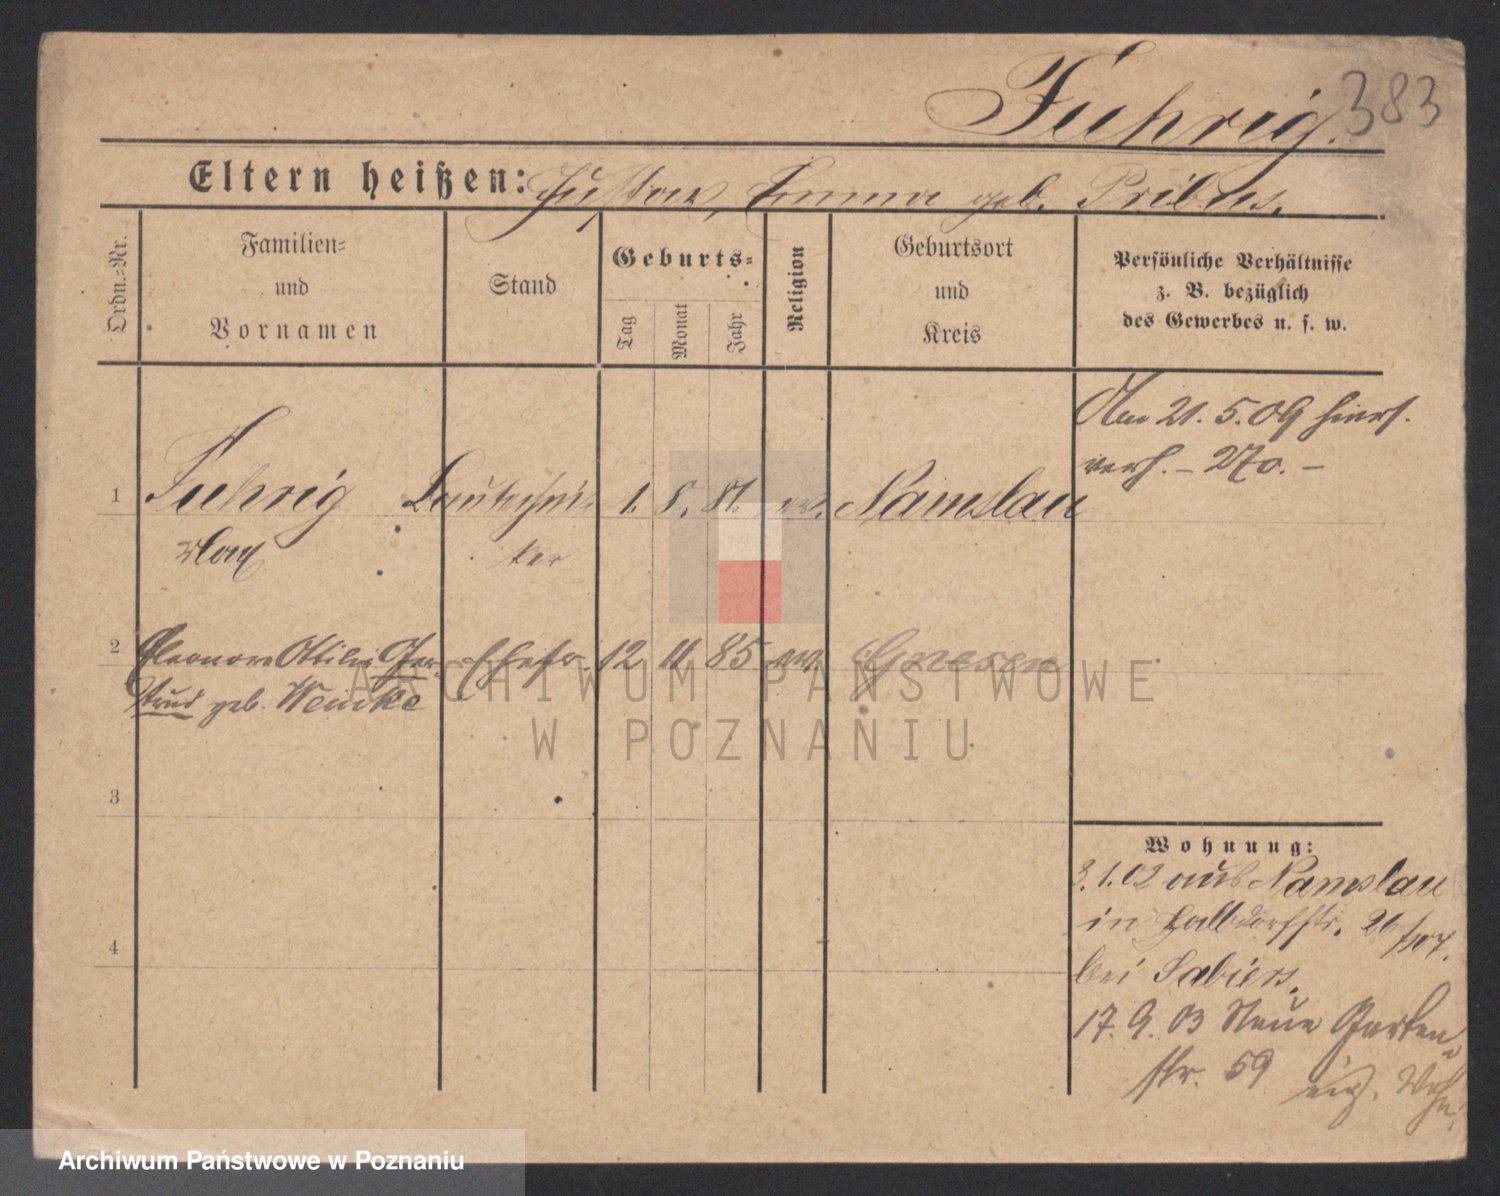 Fuhrig. 383
Eltern heißen: Gustav, Emma geb. Pribus.
Ordn.=Nr.
Familien=
und
Vornamen
Stand
Geburts=
Tag
Monat
Jahr
Religion
Geburtsort
und
Kreis
Persönliche Verhältnisse
z. B. bezüglich
des Gewerbes u. s. w.
Am 21.5.09 hiers.
verh. – 270. –
1 Fuhrig 1. 8. 81. ev. Namslau
Max
2 Eleonore Ottilie Ger- Ehefr. 12 11 85 ev. Gnesen
trud geb. Weinke
3
4
Wohnung:
3.1.02 aus Namslau
in Halbdorfstr. 26
bei Sabiers.
17. 9. 03 Neue Garten-
str. 59 eig. Wohn.
ARCHIWUM PAŃSTWOWE
W POZNANIU
Archiwum Państwowe w Poznaniu